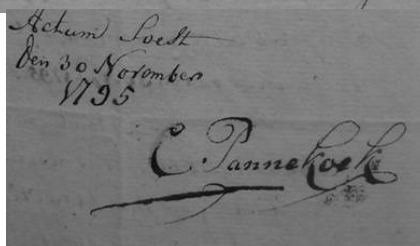 Actum Soest
den 30 November
1795
C. Pannekoek